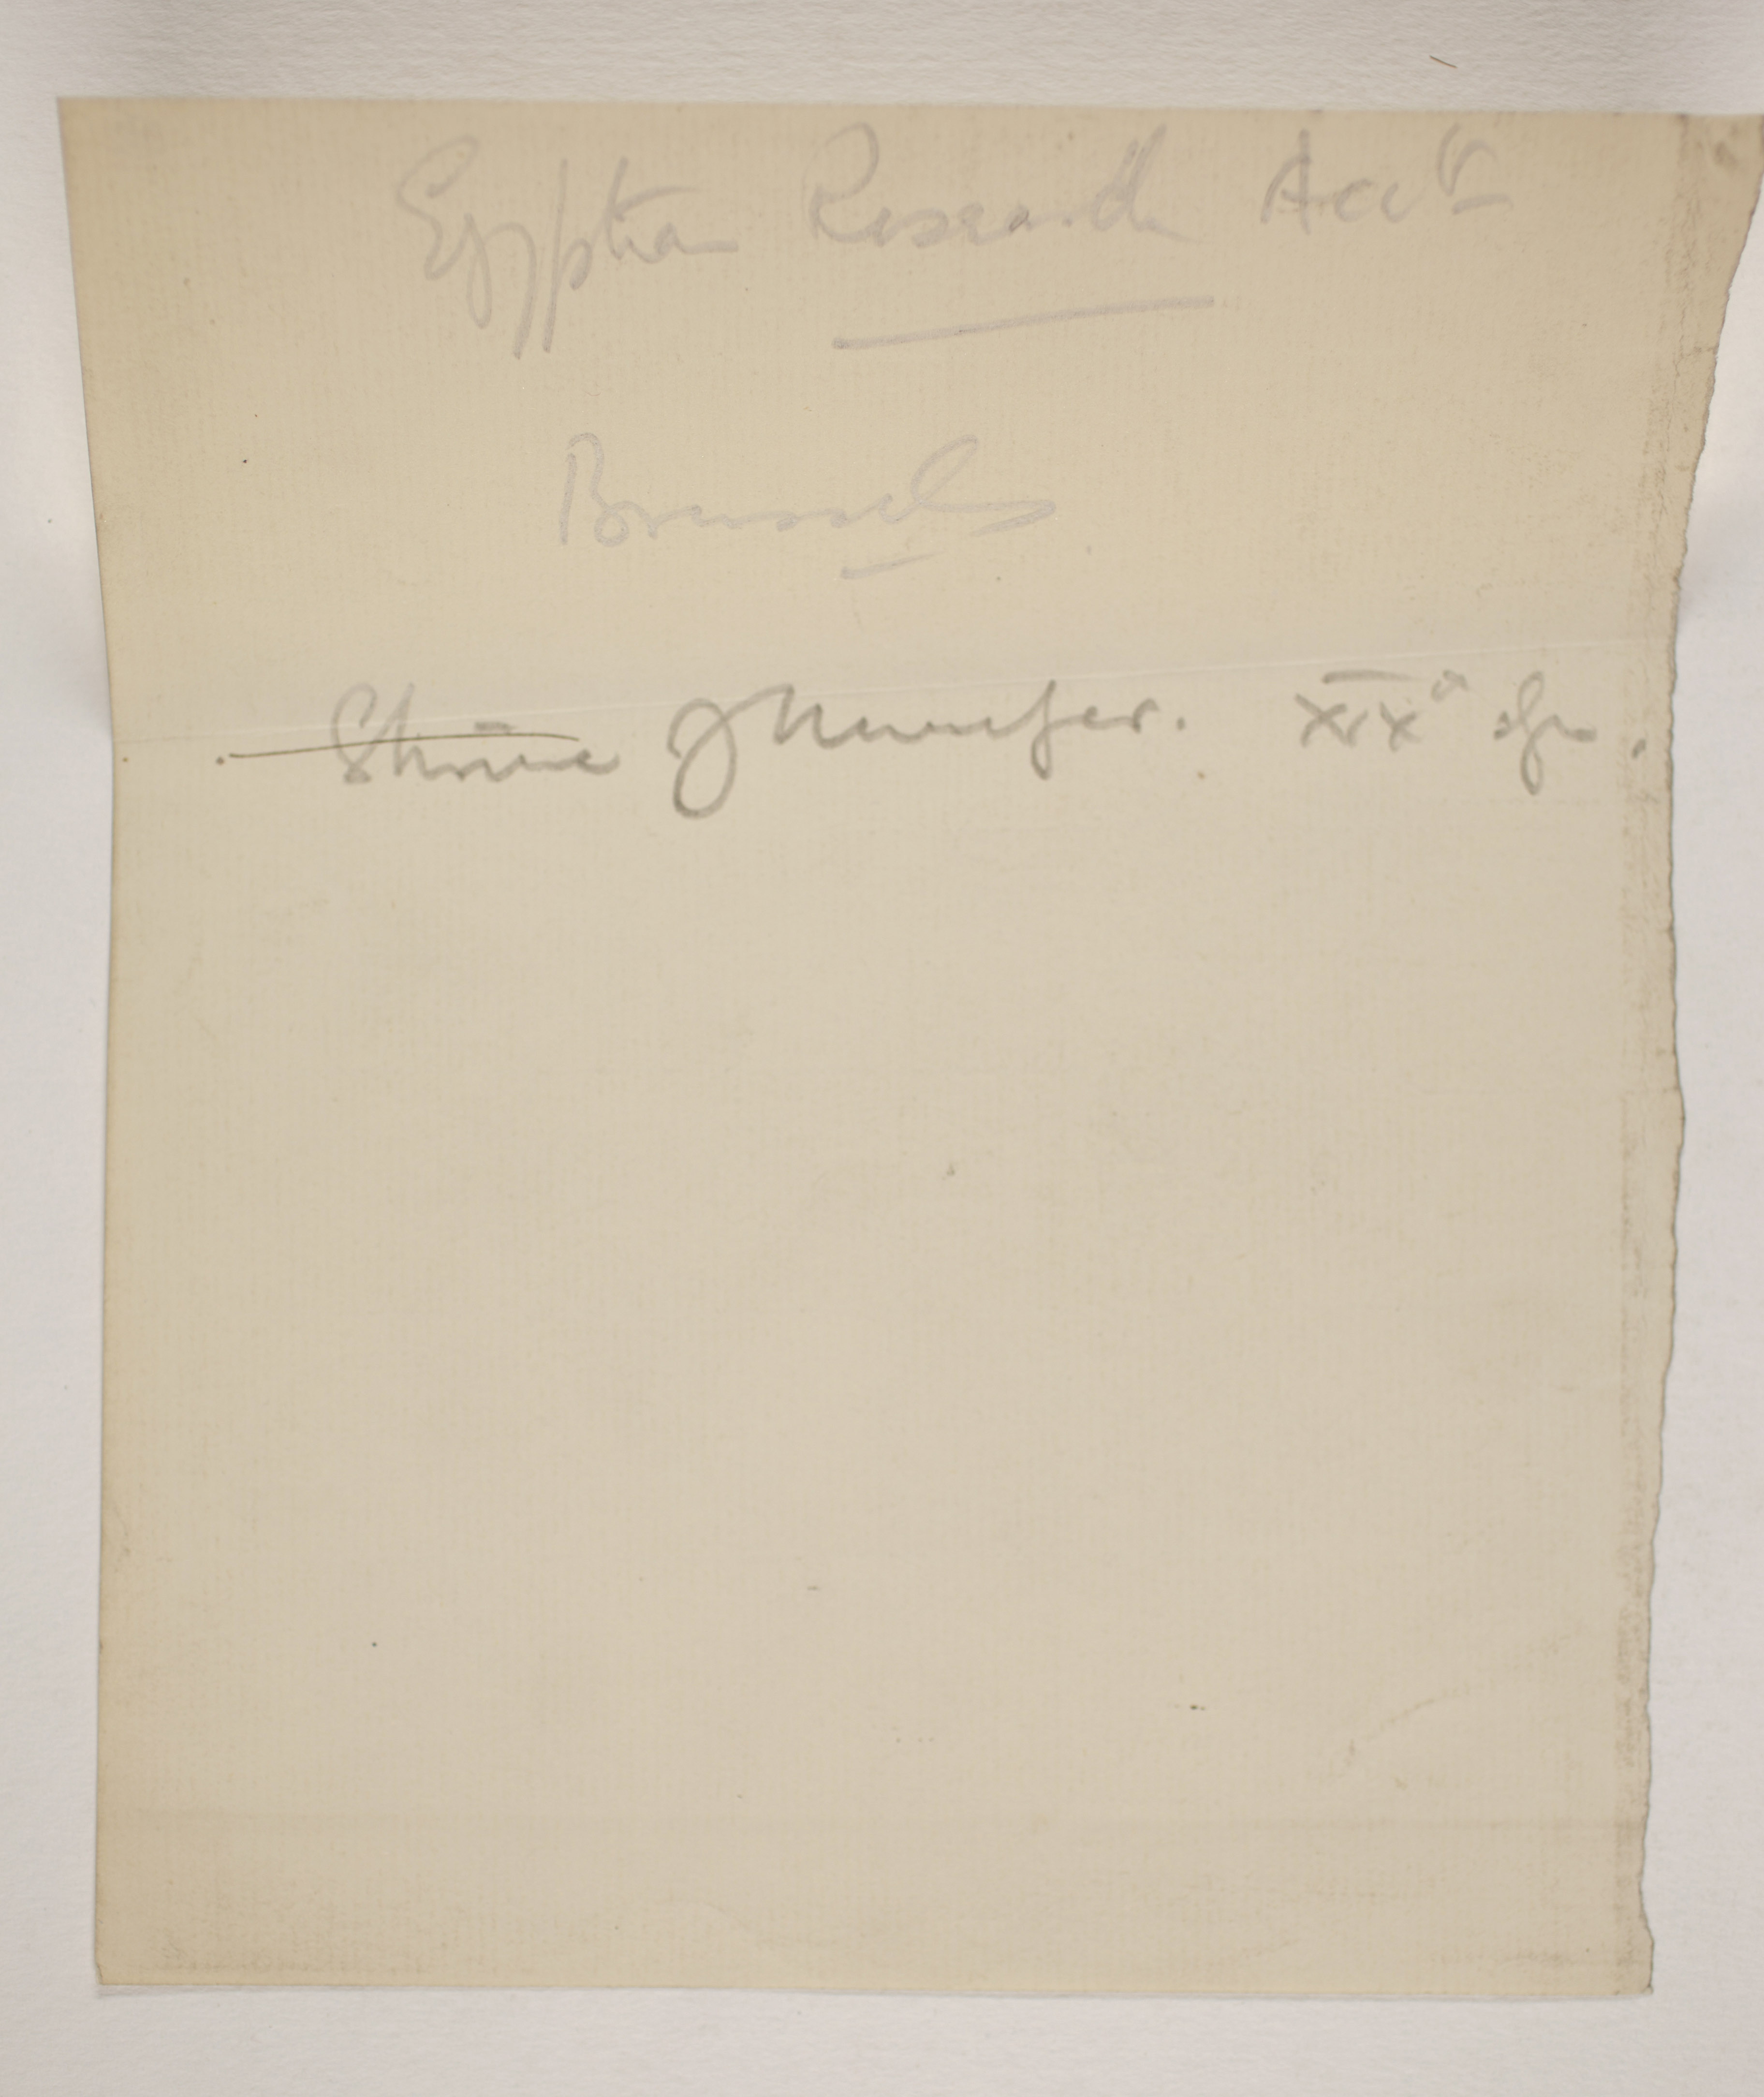 Egyptian Research Acct
Brussels
Shrine of Nunufer. XIXth dyn.